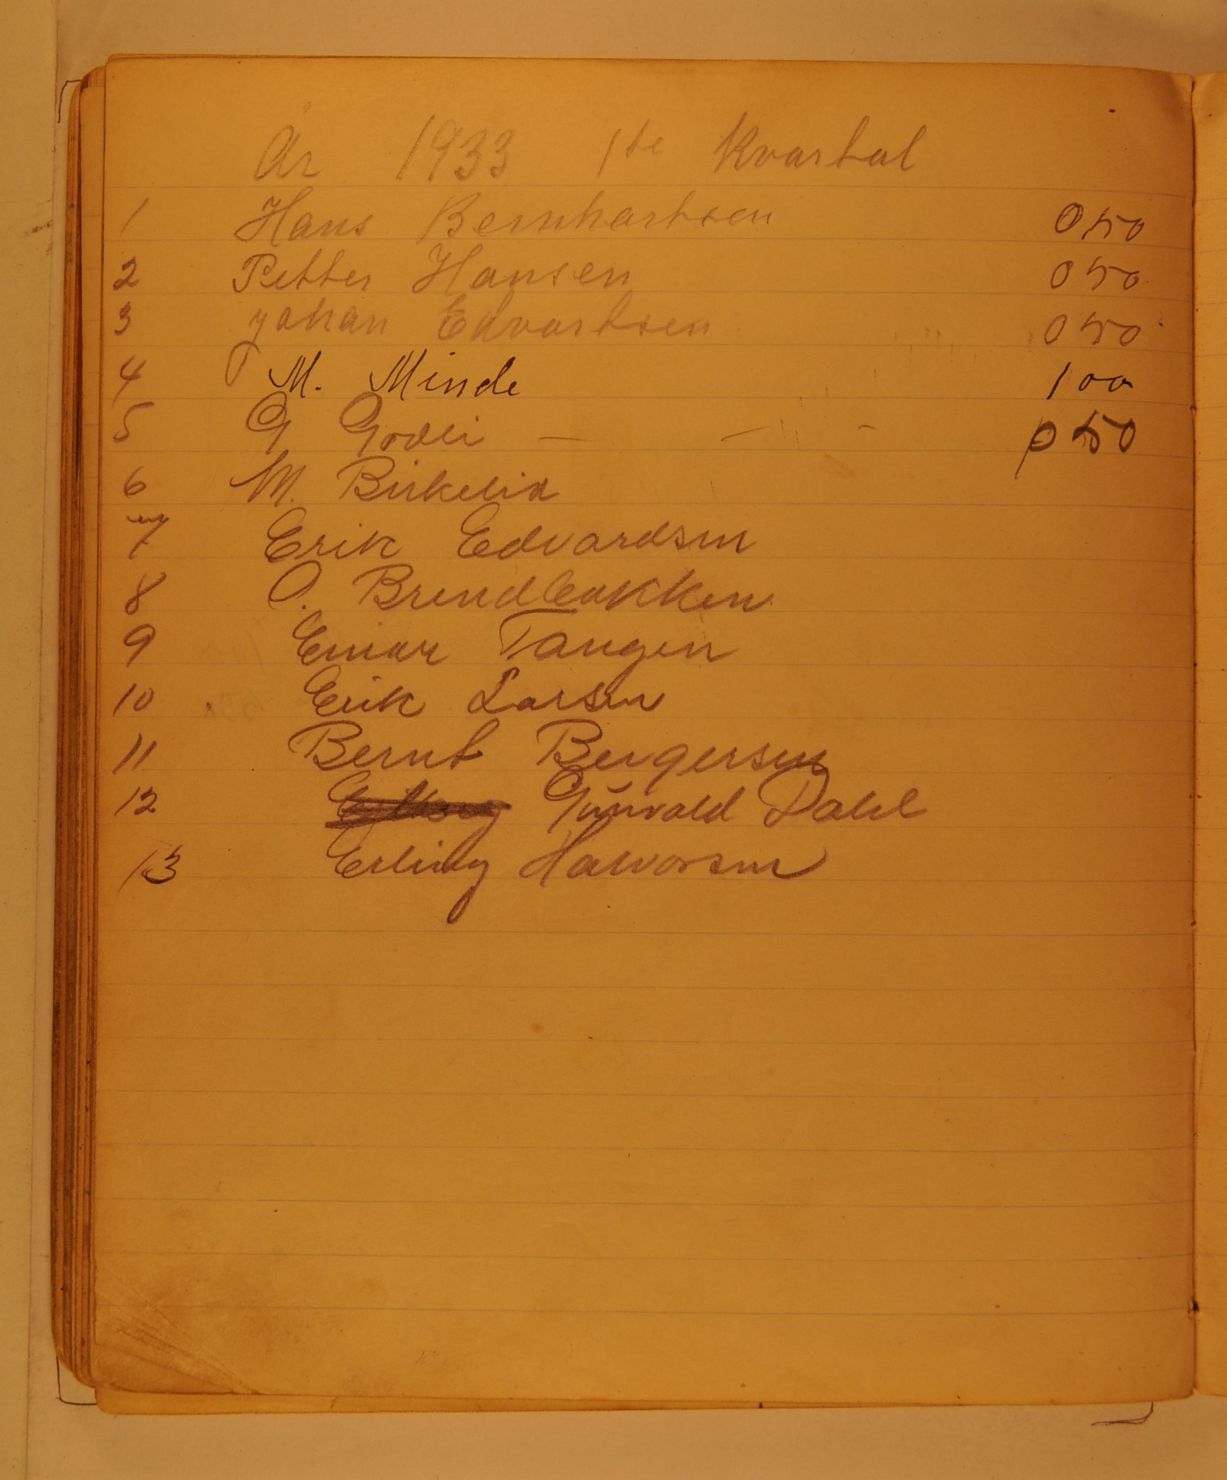 År 1933 1te Kvartal
1 Hans Bernhartsen 0 50
2 Petter Hansen 0 50
3 Johan Edvartsen 0 50
4 M. Minde 1 00
5 G Godli — — - 0 50
6 M. Birkelid
7 Erik Edvardsen
8 O. Brendbakken
9 Einar Tangen
10 Erik Larsen
11 Bernt Bergersen
12 Gunvald Dahl
13 Erling Halvorsen